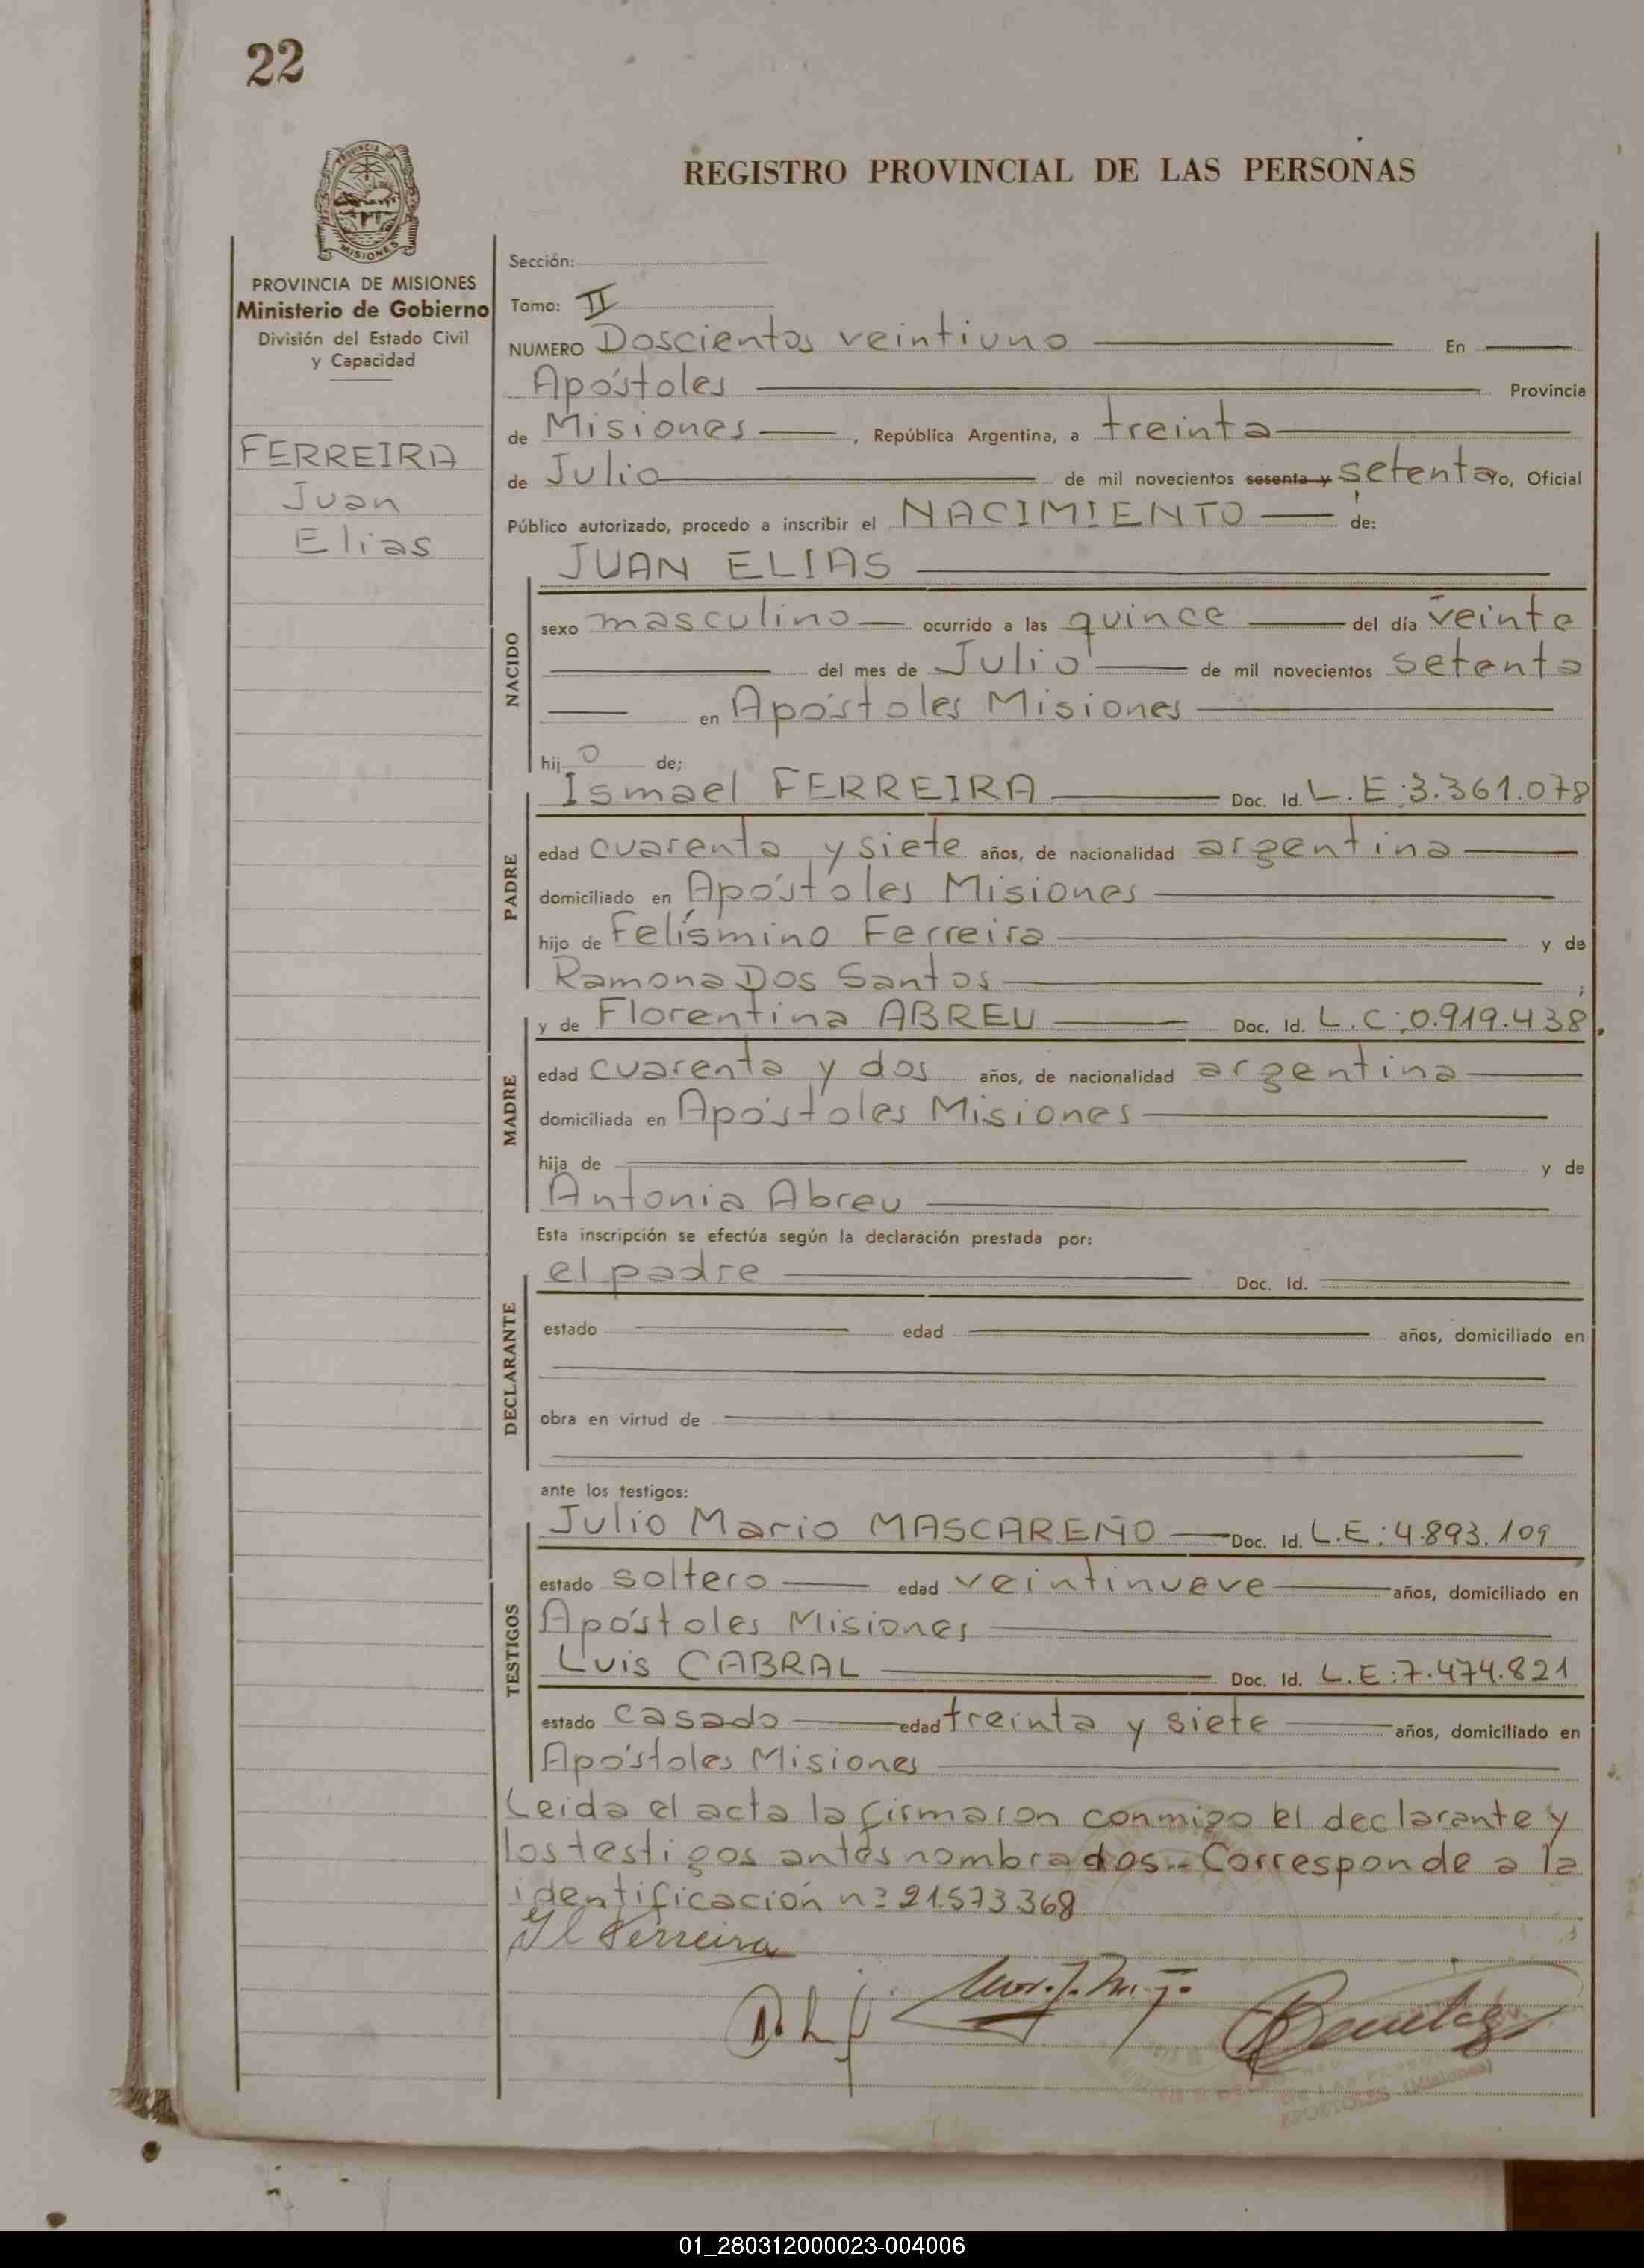 22
PROVINCIA DE
MISIONES
REGISTRO PROVINCIAL DE LAS PERSONAS
PROVINCIA DE MISIONES
Ministerio de Gobierno
División del Estado Civil
y Capacidad
FERREIRA
Juan
Elias
Sección:
Tomo: II
NUMERO Doscientos veintiuno En
Apóstoles Provincia
de Misiones, República Argentina, a treinta
de Julio de mil novecientos sesenta y setenta yo, Oficial
Público autorizado, procedo a inscribir el NACIMIENTO de:
NACIDO
JUAN ELIAS
sexo masculino ocurrido a las quince del día veinte
del mes de Julio de mil novecientos setenta
en Apóstoles Misiones
hij o de;
PADRE
Ismael FERREIRA Doc. Id. L.E:3.361.078
edad cuarenta y siete años, de nacionalidad argentina
domiciliado en Apóstoles Misiones
hijo de Felísmino Ferreira y de
Ramona Dos Santos ;
MADRE
y de Florentina ABREU Doc. Id. L.C:0.919.438.
edad cuarenta y dos años, de nacionalidad argentina
domiciliada en Apóstoles Misiones
hija de y de
Antonia Abreu
Esta inscripción se efectúa según la declaración prestada por:
DECLARANTE
el padre Doc. Id.
estado edad años, domiciliado en
obra en virtud de
ante los testigos:
TESTIGOS
Julio Mario MASCAREÑO Doc. Id. L.E:4.893.109
estado soltero edad veintinueve años, domiciliado en
Apóstoles Misiones
Luis CABRAL Doc. Id. L.E:7.474.821
estado casado edad treinta y siete años, domiciliado en
Apóstoles Misiones
Leida el acta la firmaron conmigo el declarante y
los testigos antes nombrados.- Corresponde a la
identificación nº 21.573.368
Ferreira
APOSTOLES (Misiones)
01_280312000023-004006